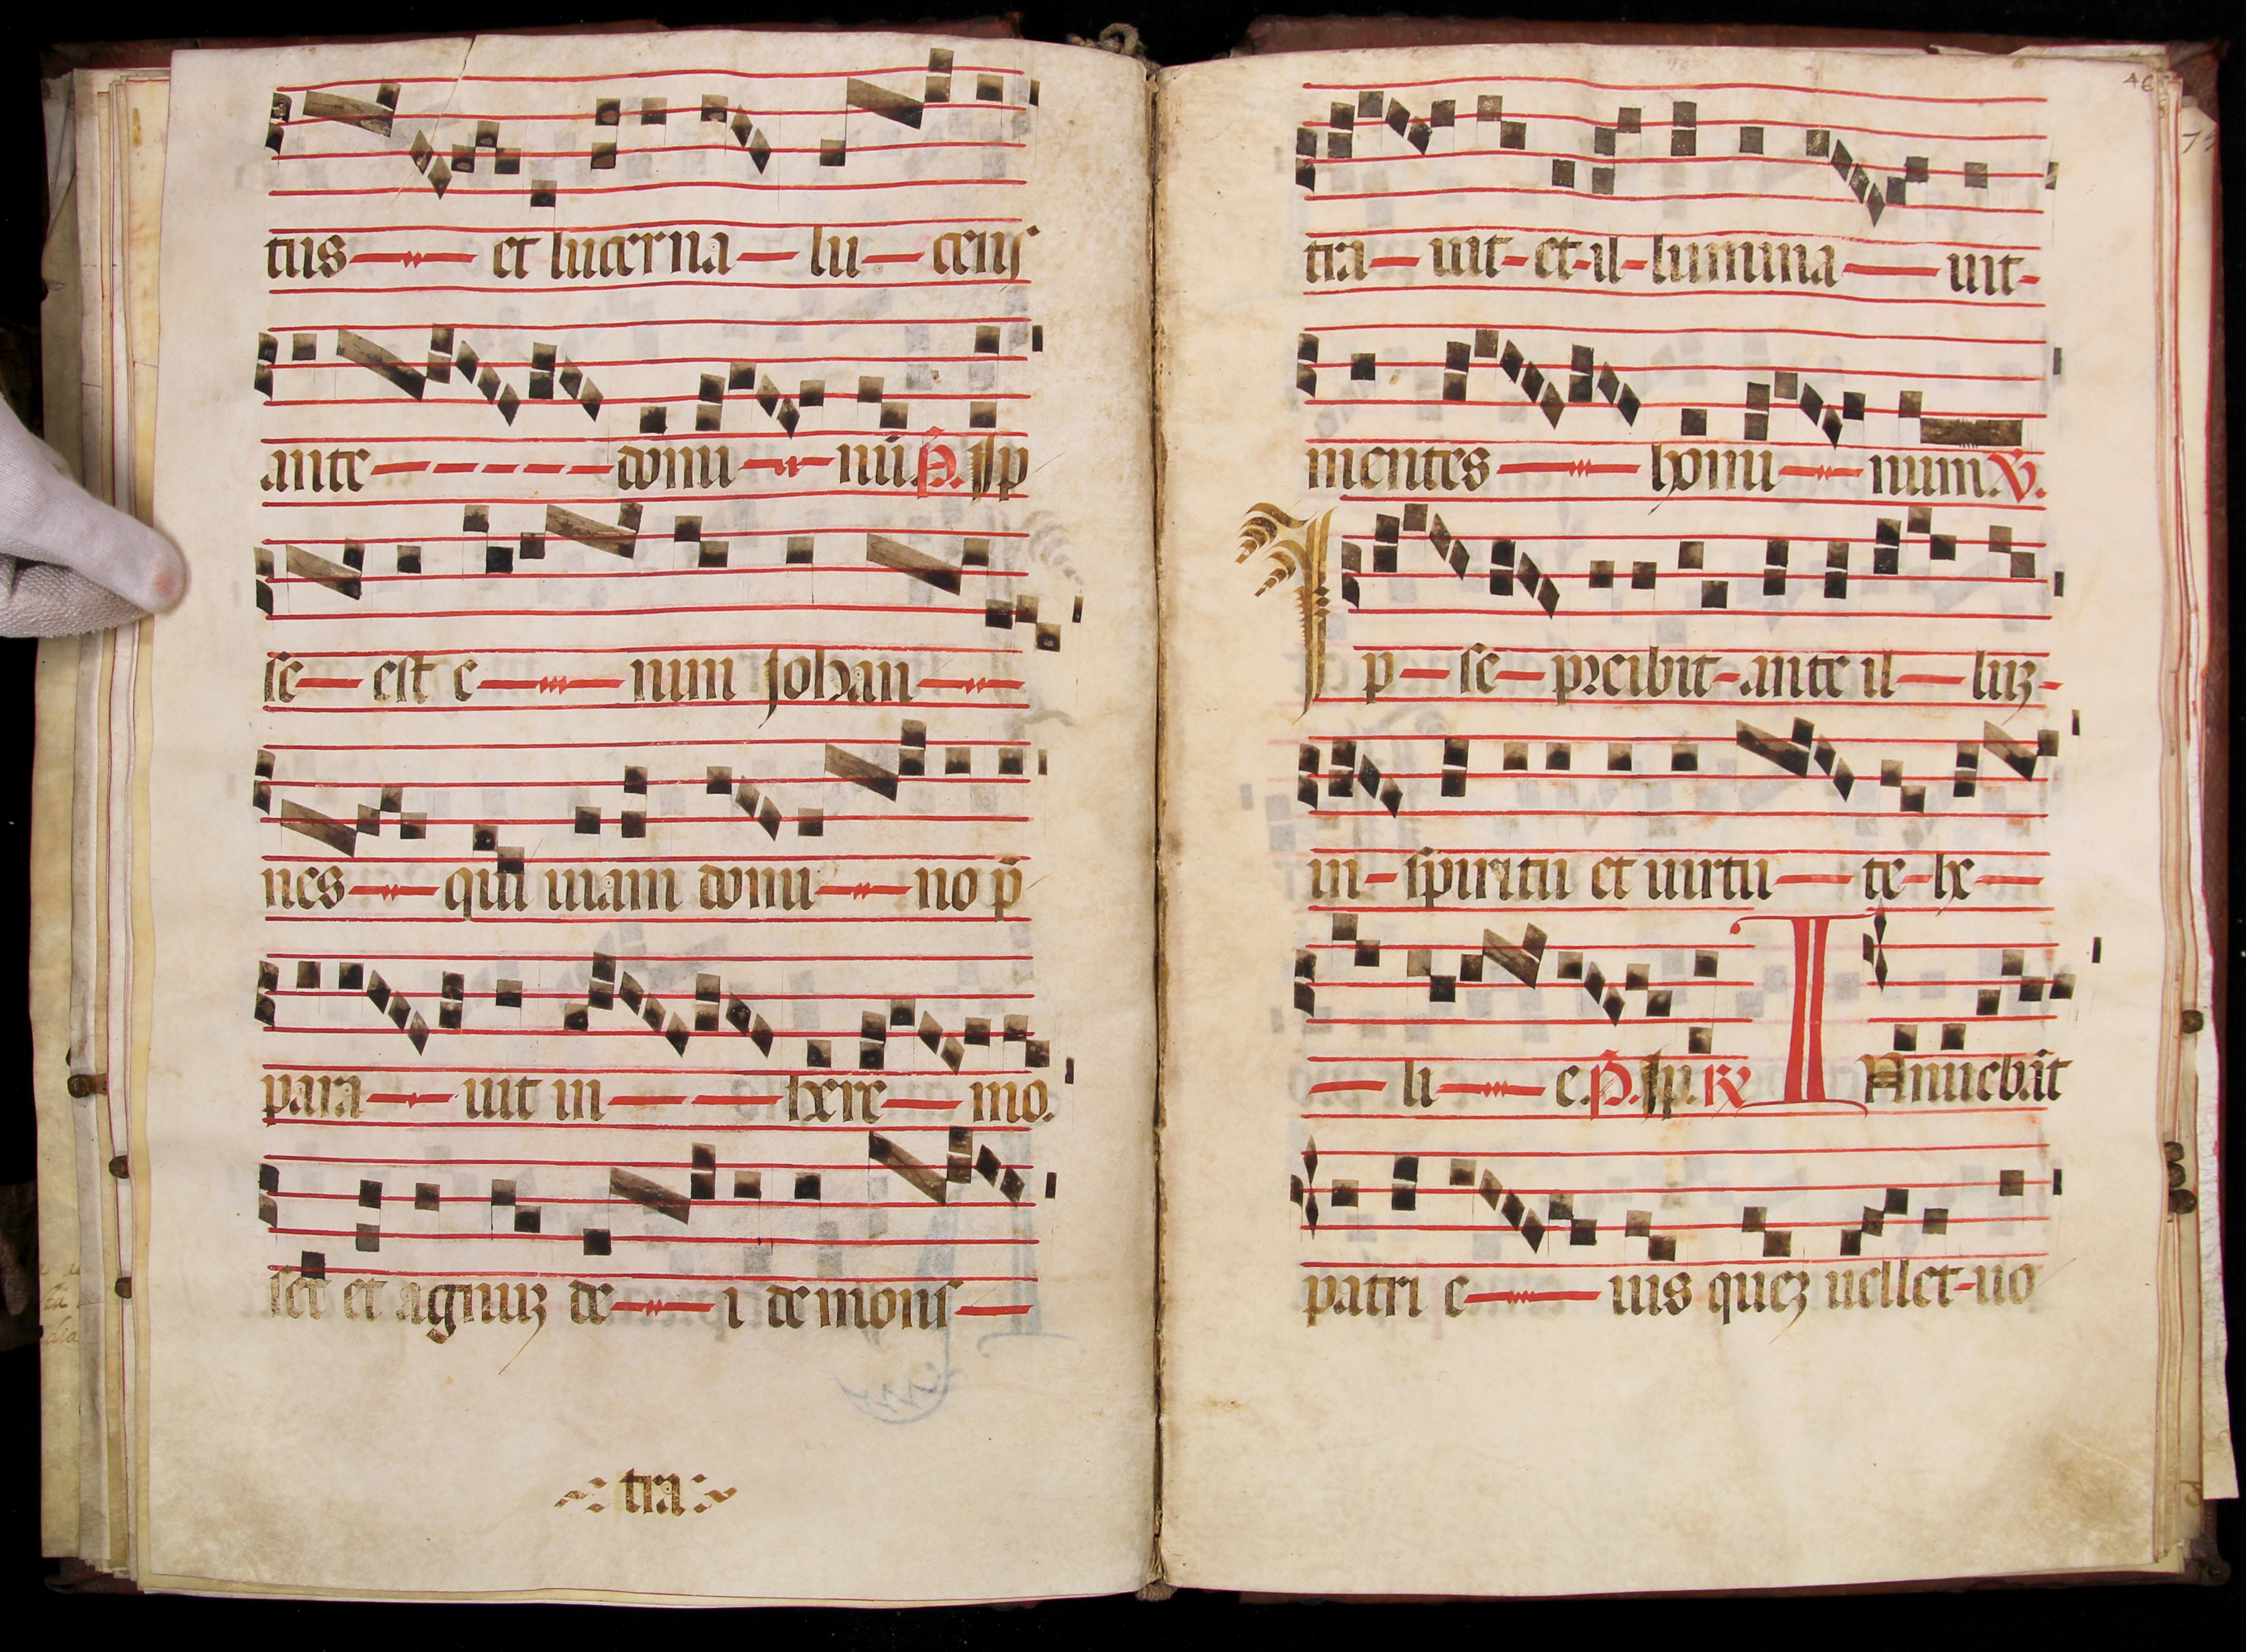 tus et lucerna lucens
ante dominū. P̄. Ip
se est enim Johan
nes qui uiam domino p̄
parauit in heremo.
set et agnuꝫ dei demons
tra
46
trauit et illuminauit
mentes hominum. ℣.
Ipse preibit ante illuꝫ
in spiritu et uirtute he
lie. P̄. Ip. ℟ Innuebāt
patri eius queꝫ uellet uo